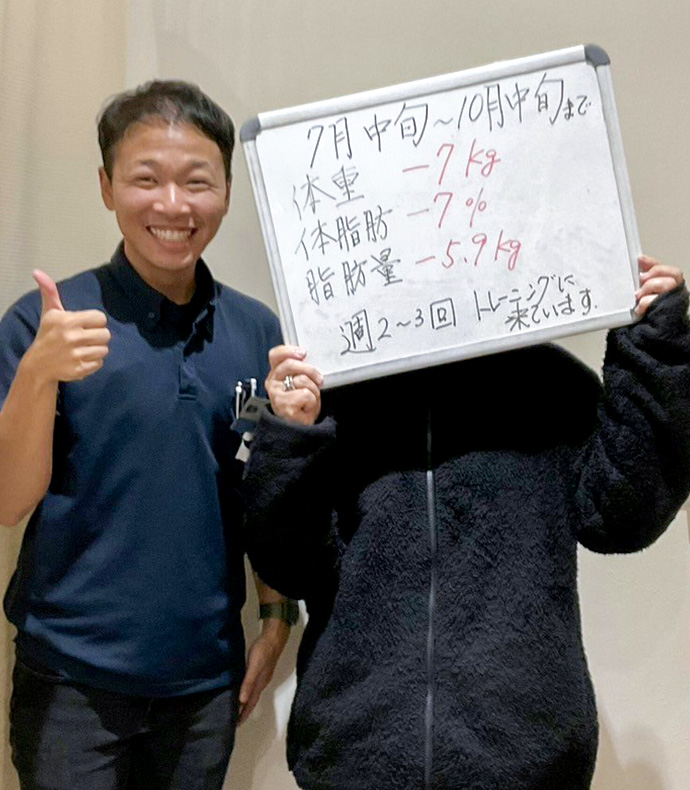 7月中旬〜10月中旬まで
体重 -7kg
体脂肪 -7%
脂肪量 -5.9kg
週2〜3回 トレーニングに
来ています.